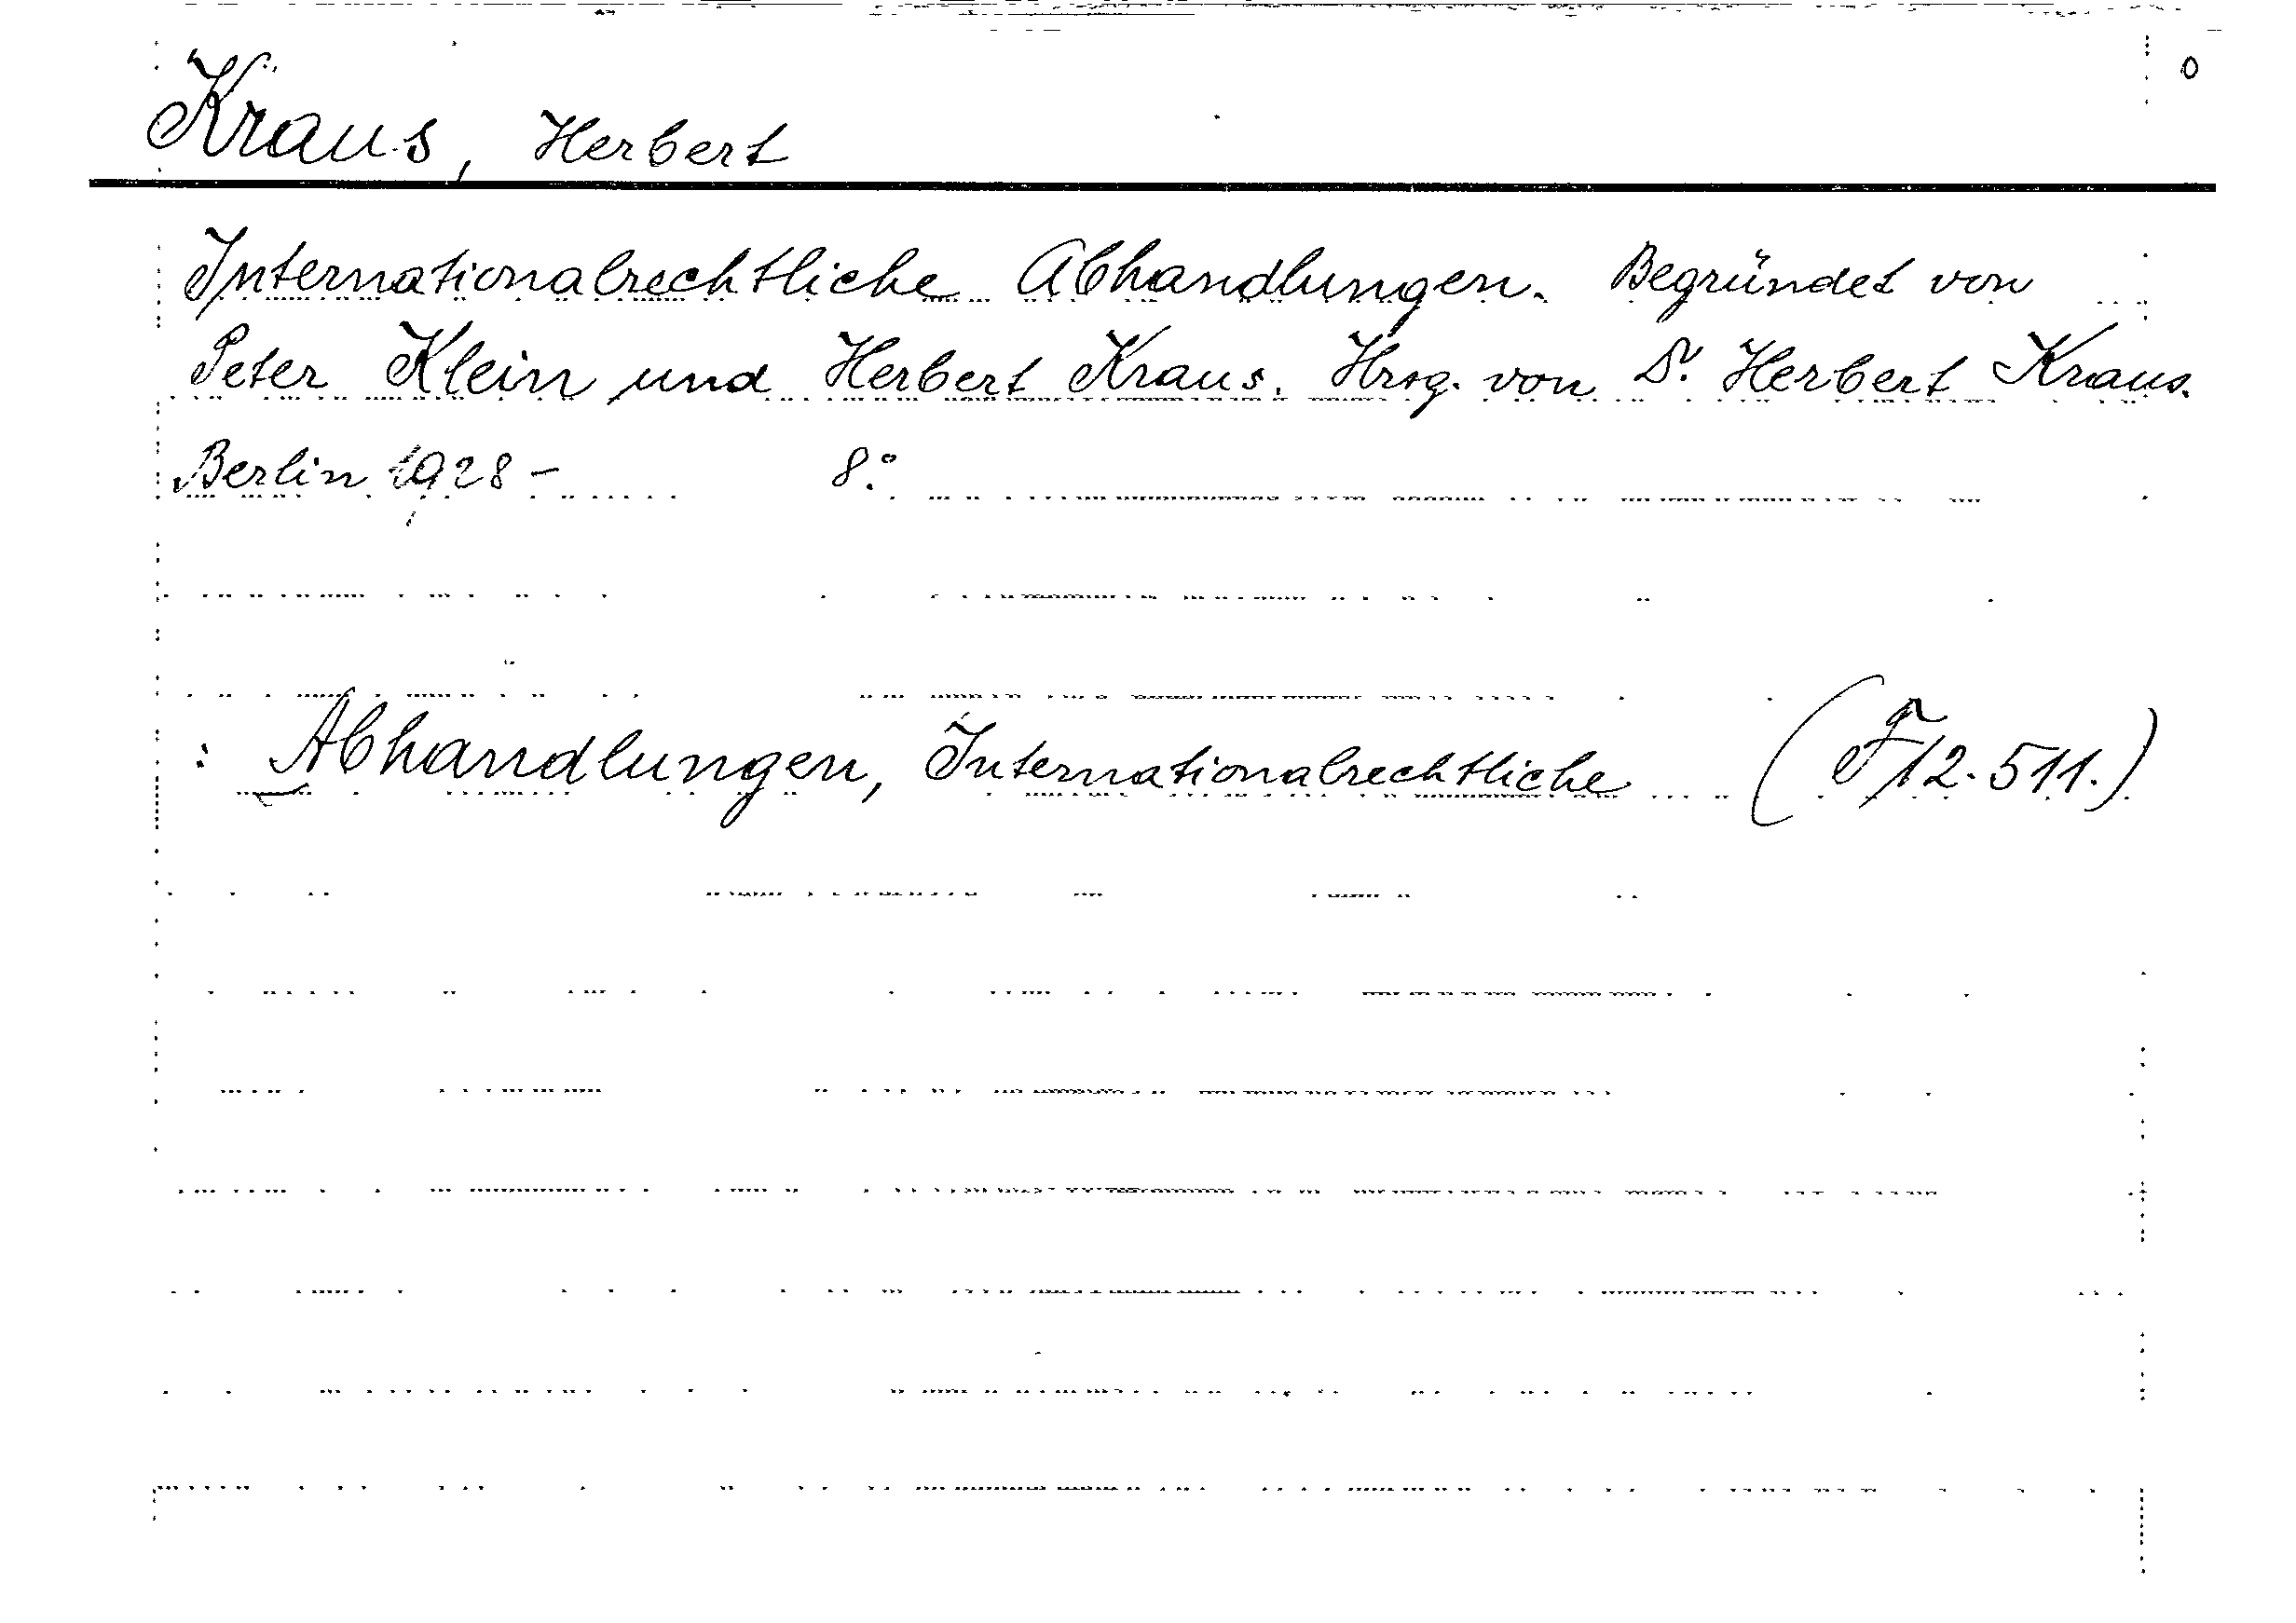 Kraus, Herbert
Internationalrechtliche Abhandlungen. Begründet von
Peter Klein und Herbert Kraus. Hrsg. von Dr. Herbert Kraus.
Berlin 1928 – 8°.
: Abhandlungen, Internationalrechtliche (F 12.511.)